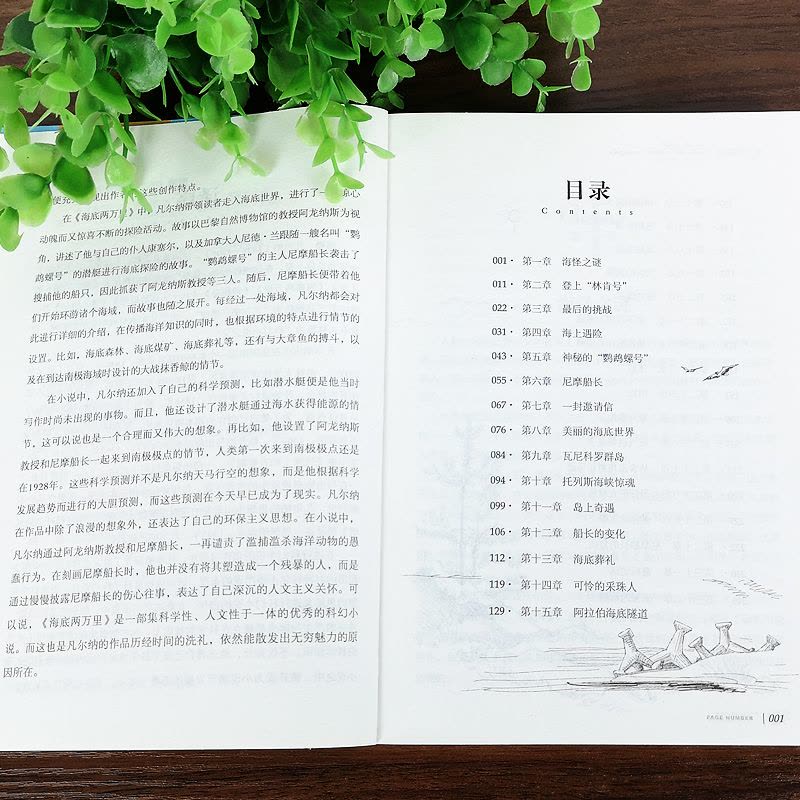 便充 现出作 这些创作特点。
在《海底两万里》中，凡尔纳带领读者走入海底世界，进行了一 惊心
动魄而又惊喜不断的探险活动。故事以巴黎自然博物馆的教授阿龙纳斯为视
角，讲述了他与自己的仆人康塞尔，以及加拿大人尼德·兰跟随一艘名叫“鹦
鹉螺号”的潜艇进行海底探险的故事。“鹦鹉螺号”的主人尼摩船长袭击了
搜捕他的船只，因此抓获了阿龙纳斯教授等三人。随后，尼摩船长便带着他
们开始环游诸个海域，而故事也随之展开。每经过一处海域，凡尔纳都会对
此进行详细的介绍，在传播海洋知识的同时，也根据环境的特点进行情节的
设置。比如，海底森林、海底煤矿、海底葬礼等，还有与大章鱼的搏斗，以
及在到达南极海域时设计的大战抹香鲸的情节。
在小说中，凡尔纳还加入了自己的科学预测，比如潜水艇便是他当时
写作时尚未出现的事物。而且，他还设计了潜水艇通过海水获得能源的情
节，这可以说也是一个合理而又伟大的想象。再比如，他设置了阿龙纳斯
教授和尼摩船长一起来到南极极点的情节，人类第一次来到南极极点还是
在1928年。这些科学预测并不是凡尔纳天马行空的想象，而是他根据科学
发展趋势而进行的大胆预测，而这些预测在今天早已成为了现实。凡尔纳
在作品中除了浪漫的想象外，还表达了自己的环保主义思想。在小说中，
凡尔纳通过阿龙纳斯教授和尼摩船长，一再谴责了滥捕滥杀海洋动物的愚
蠢行为。在刻画尼摩船长时，他也并没有将其塑造成一个残暴的人，而是
通过慢慢披露尼摩船长的伤心往事，表达了自己深沉的人文主义关怀。可
以说，《海底两万里》是一部集科学性、人文性于一体的优秀的科幻小
说。而这也是凡尔纳的作品历经时间的洗礼，依然能散发出无穷魅力的原
因所在。
目录
Contents
001· 第一章 海怪之谜
011· 第二章 登上“林肯号”
022· 第三章 最后的挑战
031· 第四章 海上遇险
043· 第五章 神秘的“鹦鹉螺号”
055· 第六章 尼摩船长
067· 第七章 一封邀请信
076· 第八章 美丽的海底世界
084· 第九章 瓦尼科罗群岛
094· 第十章 托列斯海峡惊魂
099· 第十一章 岛上奇遇
106· 第十二章 船长的变化
112· 第十三章 海底葬礼
119· 第十四章 可怜的采珠人
129· 第十五章 阿拉伯海底隧道
PAGE NUMBER | 001